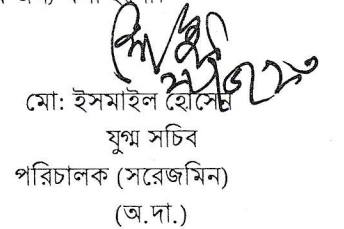 মো: ইসমাইল হোসেন
যুগ্ম সচিব
পরিচালক (সরেজমিন)
(অ.দা.)